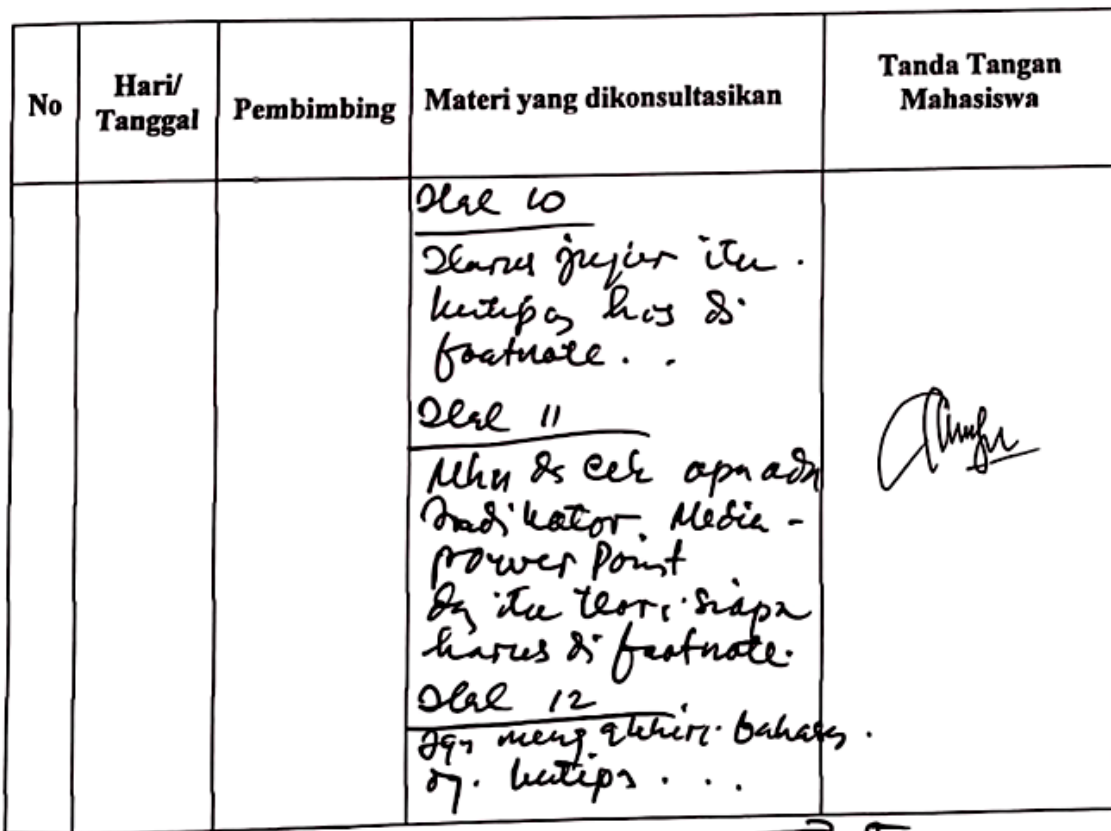 No
Hari/
Tanggal
Pembimbing
Materi yang dikonsultasikan
Tanda Tangan
Mahasiswa
Hal 10
Harus jujur itu.
kutipan hrs di
footnote..
Hal 11
di cek apa ada
Indikator Media -
power Point
dg itu teori siapa
harus di footnote.
Hal 12
Jgn mengakhiri bahasan.
dg. kutipn...